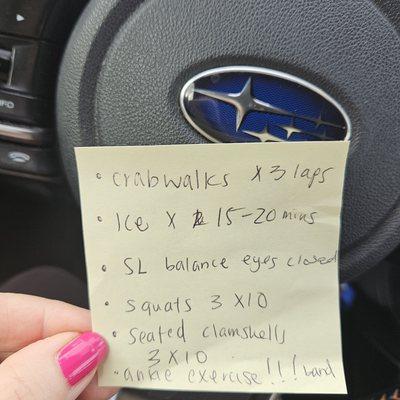 • crabwalks x 3 laps
• Ice x 15-20 mins
• SL balance eyes closed
• squats 3 x 10
• seated clamshells
3 x 10
• ankle exercise!!! band